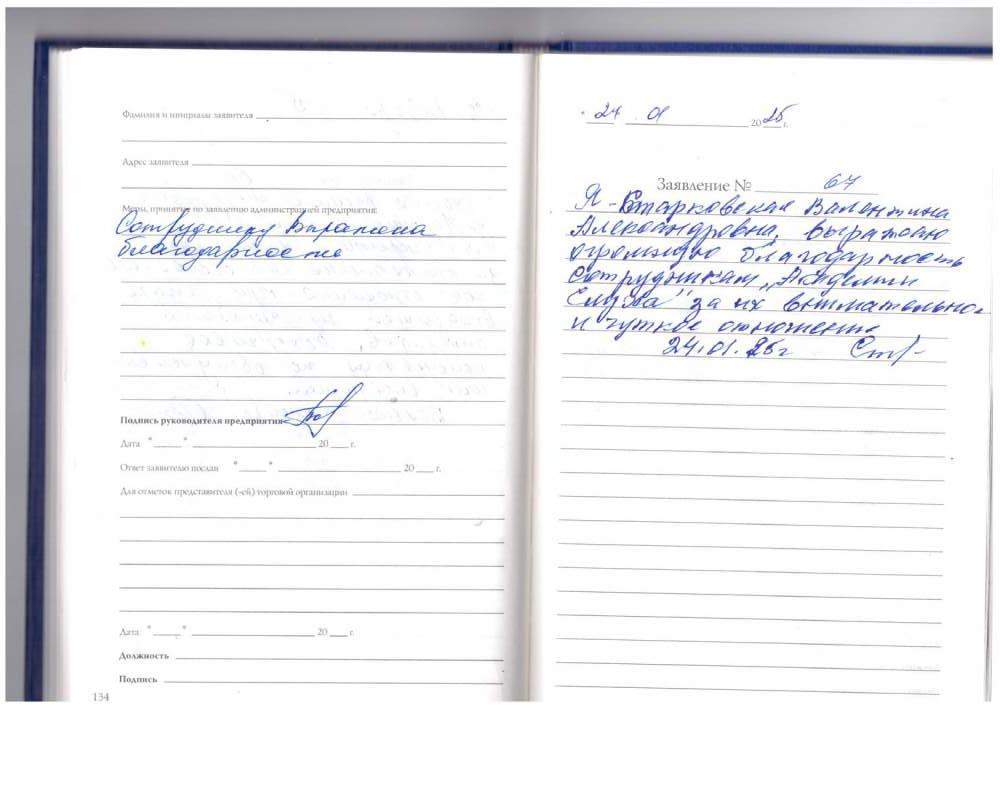 Фамилия и инициалы заявителя
Адрес заявителя
Меры, принятые по заявлению администрацией предприятия:
Сотруднику
благодарность
Подпись руководителя предприятия
Дата " " 20 г.
Ответ заявителю послан " " 20 г.
Для отметок представителя (-ей) торговой организации
Дата " " 20 г.
Должность
Подпись
134
24 01 2025 г.
Заявление № 67
Я - Старковская Валентина
Александровна, выражаю
огромную благодарность
сотрудникам „Академии
Слуха" за их внимательное
и чуткое отношение
24.01.25г Ст